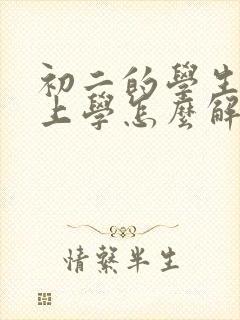 初二的學生
上學怎麼解
情繫半生